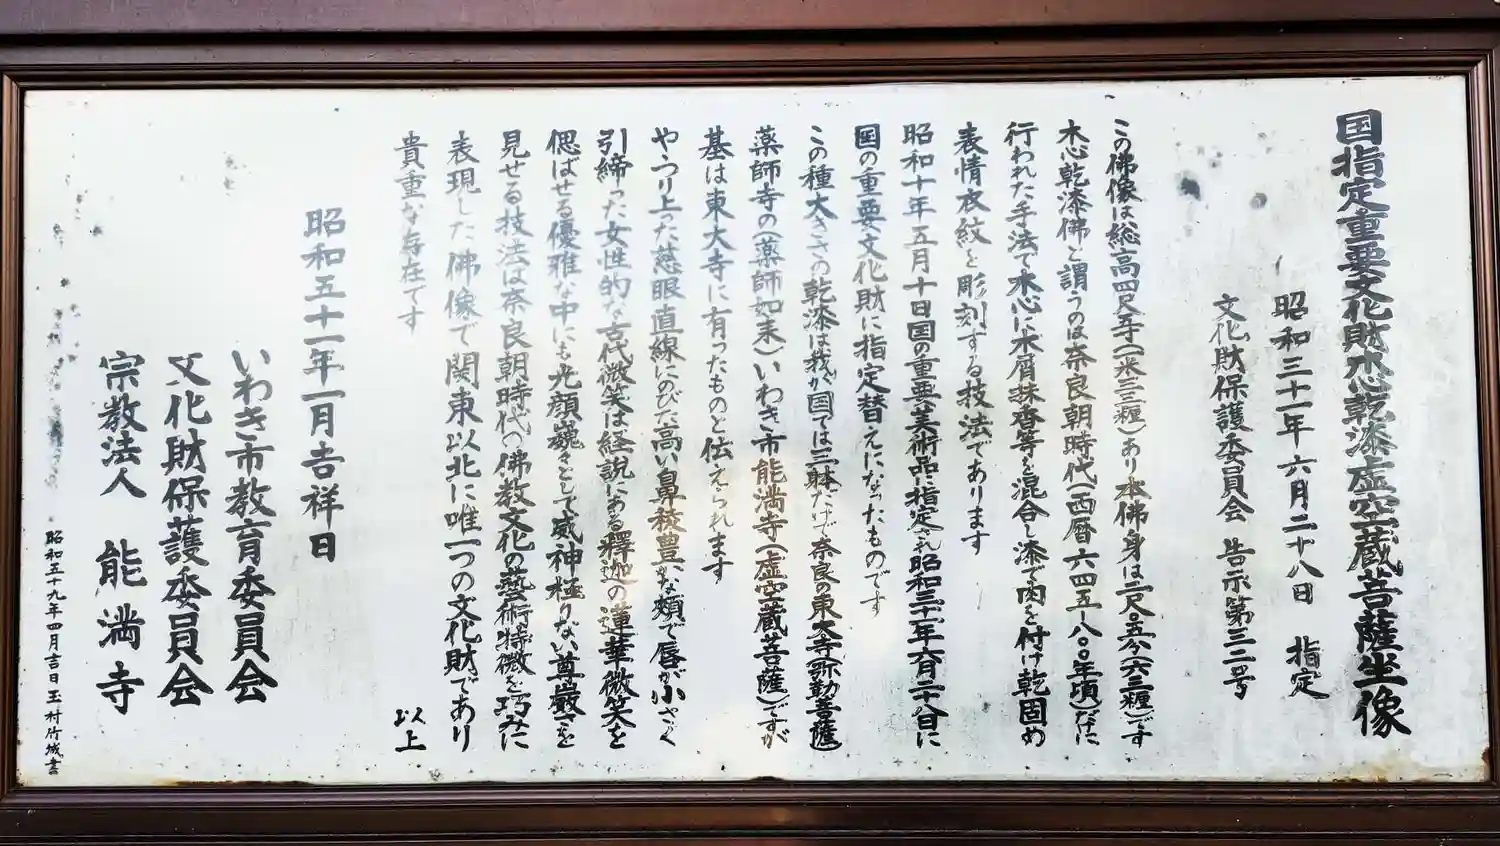 国指定重要文化財木心乾漆虚空蔵菩薩坐像
昭和三十一年六月二十八日 指定
文化財保護委員会 告示第三二号
この佛像は総高四尺寺(一米三三糎)あり本佛身は二尺〇五分(六三糎)です
木心乾漆佛と謂うのは奈良朝時代(西暦六四五-八〇〇年頃)なかに
行われた手法で木心に木屑抹香等を混合し漆で肉を付け乾固め
表情衣紋を彫刻する技法であります
昭和十年五月十日国の重要美術品に指定され昭和三十一年六月二十八日に
国の重要文化財に指定替えになったものです
この種大きさの乾漆は我が国では三躰だけで奈良の東大寺(弥勒菩薩)
薬師寺の(薬師如来)いわき市能満寺(虚空蔵菩薩)ですが
基は東大寺に有ったものと伝えられます
やゝつり上った慈眼直線にのびた高い鼻稜豊かな頬で唇が小さく
引締った女性的な古代微笑は経説にある釋迦の蓮華微笑を
偲ばせる優雅な中にも光顔巍々として威神極りない尊嚴さを
見せる技法は奈良朝時代の佛教文化の藝術特徴を巧みに
表現した佛像で関東以北に唯一つの文化財であり
貴重な存在です 以上
昭和五十一年一月吉祥日
いわき市教育委員会
文化財保護委員会
宗教法人 能満寺
昭和五十九年四月吉日玉村竹城書